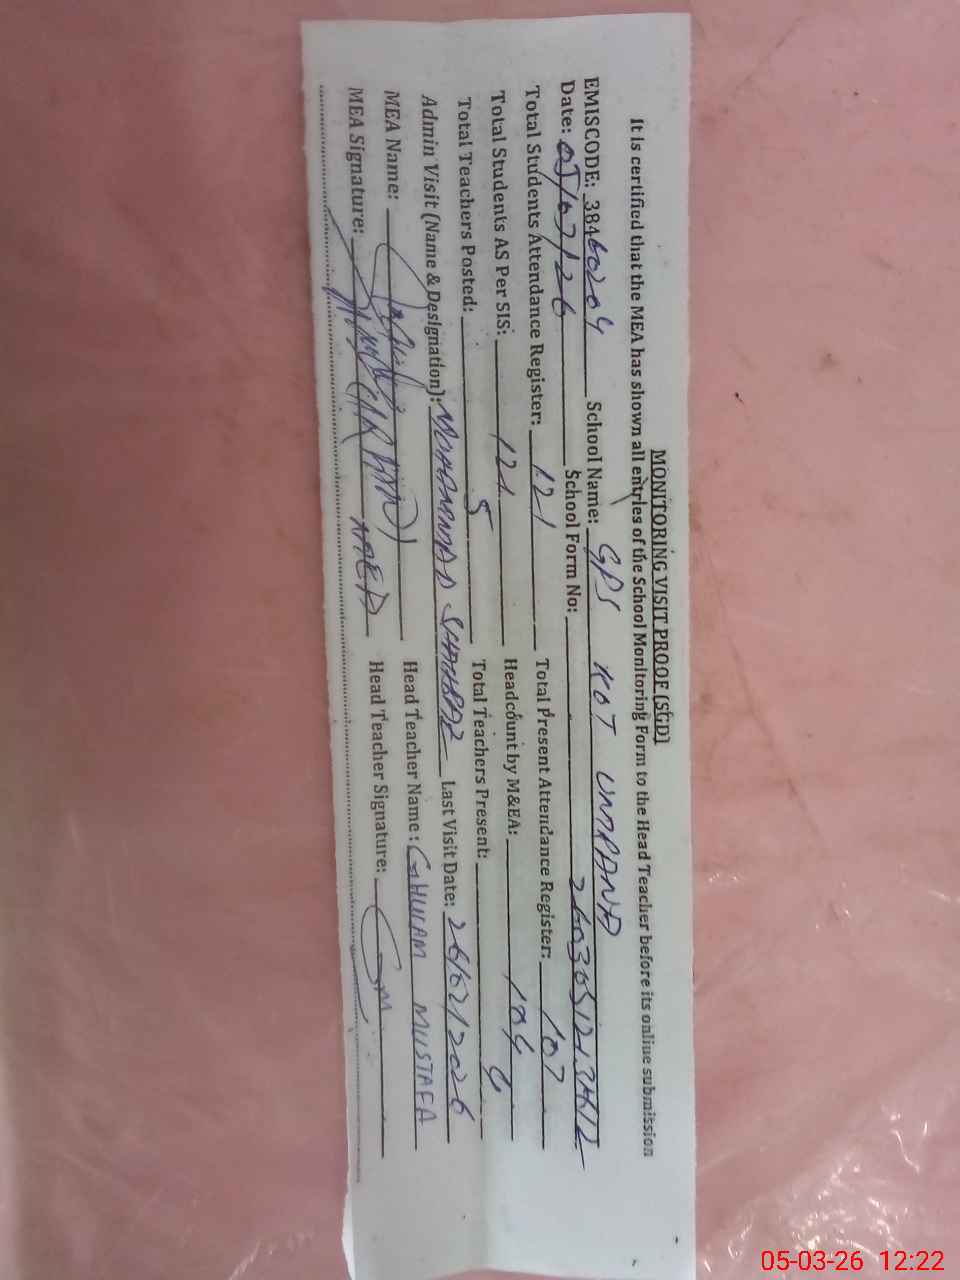 MONITORING VISIT PROOF (SGD)
It is certified that the MEA has shown all entries of the School Monitoring Form to the Head Teacher before its online submission
EMISCODE: 38460204 School Name: GPS KOT UMRANA
Date: 05/03/26 School Form No:
Total Students Attendance Register: 121 Total Present Attendance Register: 107
Total Students AS Per SIS: 121 Headcount by M&EA: 104
Total Teachers Posted: 5 Total Teachers Present: 4
Admin Visit (Name & Designation): MUHAMMAD Last Visit Date: 26/02/2026
MEA Name: Head Teacher Name: GHULAM MUSTAFA
MEA Signature: Head Teacher Signature: GM
05-03-26 12:22